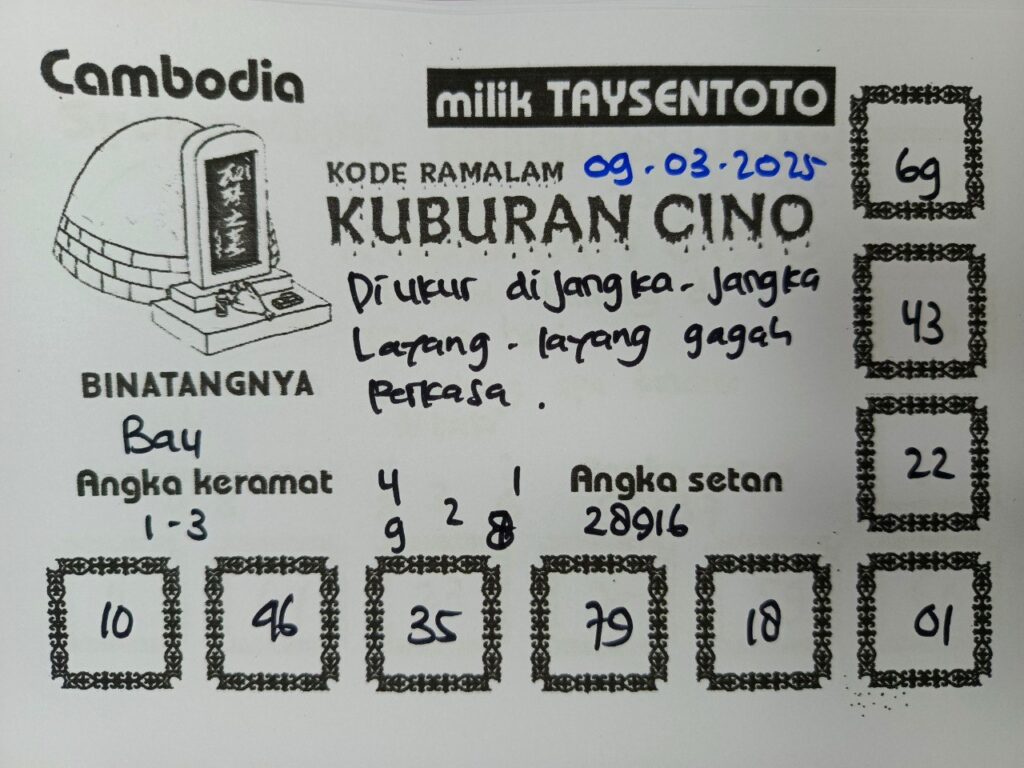 Cambodia
milik TAYSENTOTO
KODE RAMALAM 09.03.2025
KUBURAN CINO
Diukur dijangka-jangka
Layang-layang gagah
perkasa.
BINATANGNYA
Bay
Angka keramat
1-3
4 1
2
9 8
Angka setan
28916
69
43
22
01
10
46
35
79
18